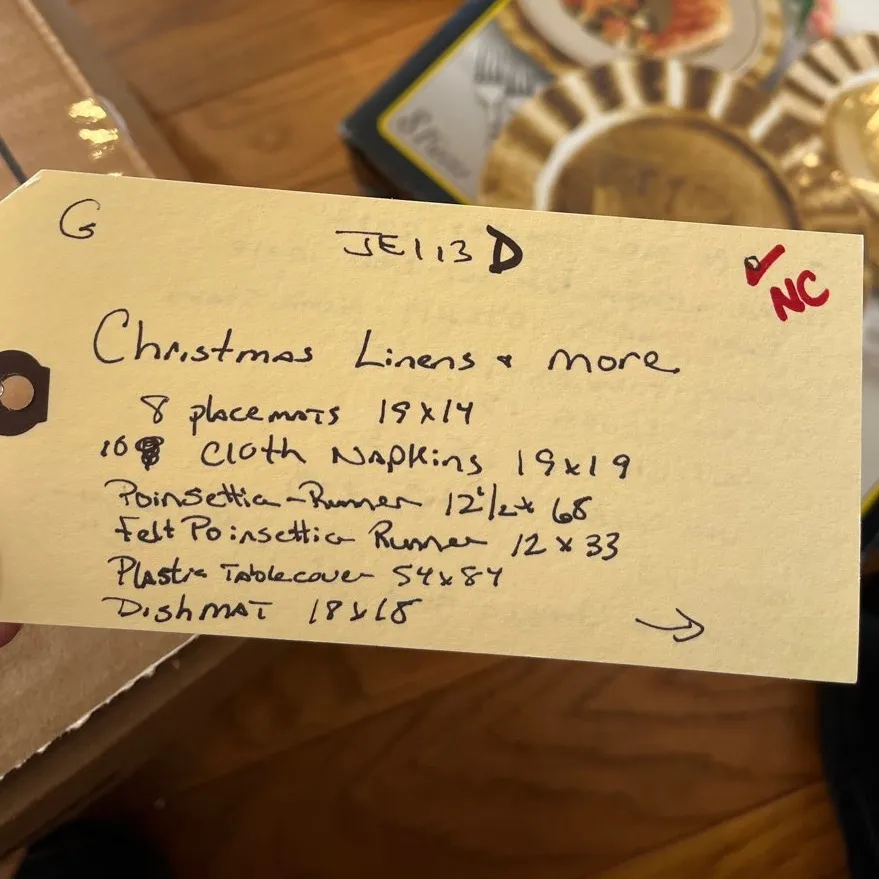 G
JE113D
NC
Christmas Linens & more
8 placemats 19x14
10 Cloth Napkins 19x19
Poinsettia-Runner 12 1/2 x 68
Felt Poinsettia Runner 12 x 33
Plastic Tablecover 54x84
Dishmat 18x18